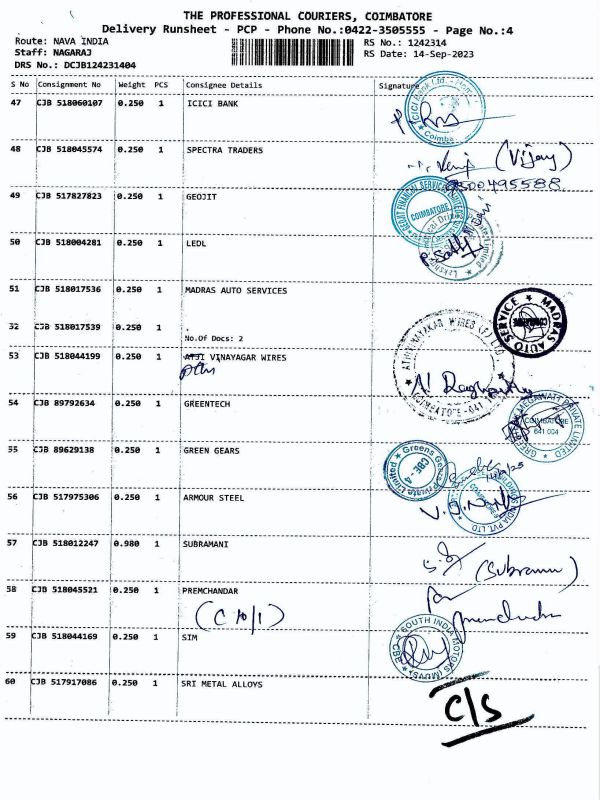 THE PROFESSIONAL COURIERS, COIMBATORE
Delivery Runsheet - PCP - Phone No.:0422-3505555 - Page No.:4
Route: NAVA INDIA RS No.: 1242314
Staff: NAGARAJ RS Date: 14-Sep-2023
DRS No.: DCJB124231404
S No Consignment No Weight PCS Consignee Details Signature
47 CJB 518060107 0.250 1 ICICI BANK
48 CJB 518045574 0.250 1 SPECTRA TRADERS
(Vijay)
49 CJB 517827823 0.250 1 GEOJIT
COIMBATORE
50 CJB 518004281 0.250 1 LEDL
51 CJB 518017536 0.250 1 MADRAS AUTO SERVICES
MADRAS AUTO SERVICE
32 CJB 518017539 0.250 1 .
No.Of Docs: 2
53 CJB 518044199 0.250 1 ATJI VINAYAGAR WIRES
54 CJB 89792634 0.250 1 GREENTECH
COIMBATORE
641 004
55 CJB 89629138 0.250 1 GREEN GEARS
CBE - 4
56 CJB 517975306 0.250 1 ARMOUR STEEL
57 CJB 518012247 0.980 1 SUBRAMANI
58 CJB 518045521 0.250 1 PREMCHANDAR
(C 10/1)
59 CJB 518044169 0.250 1 SIM
SOUTH INDIA MOTORS
60 CJB 517917086 0.250 1 SRI METAL ALLOYS
C/S